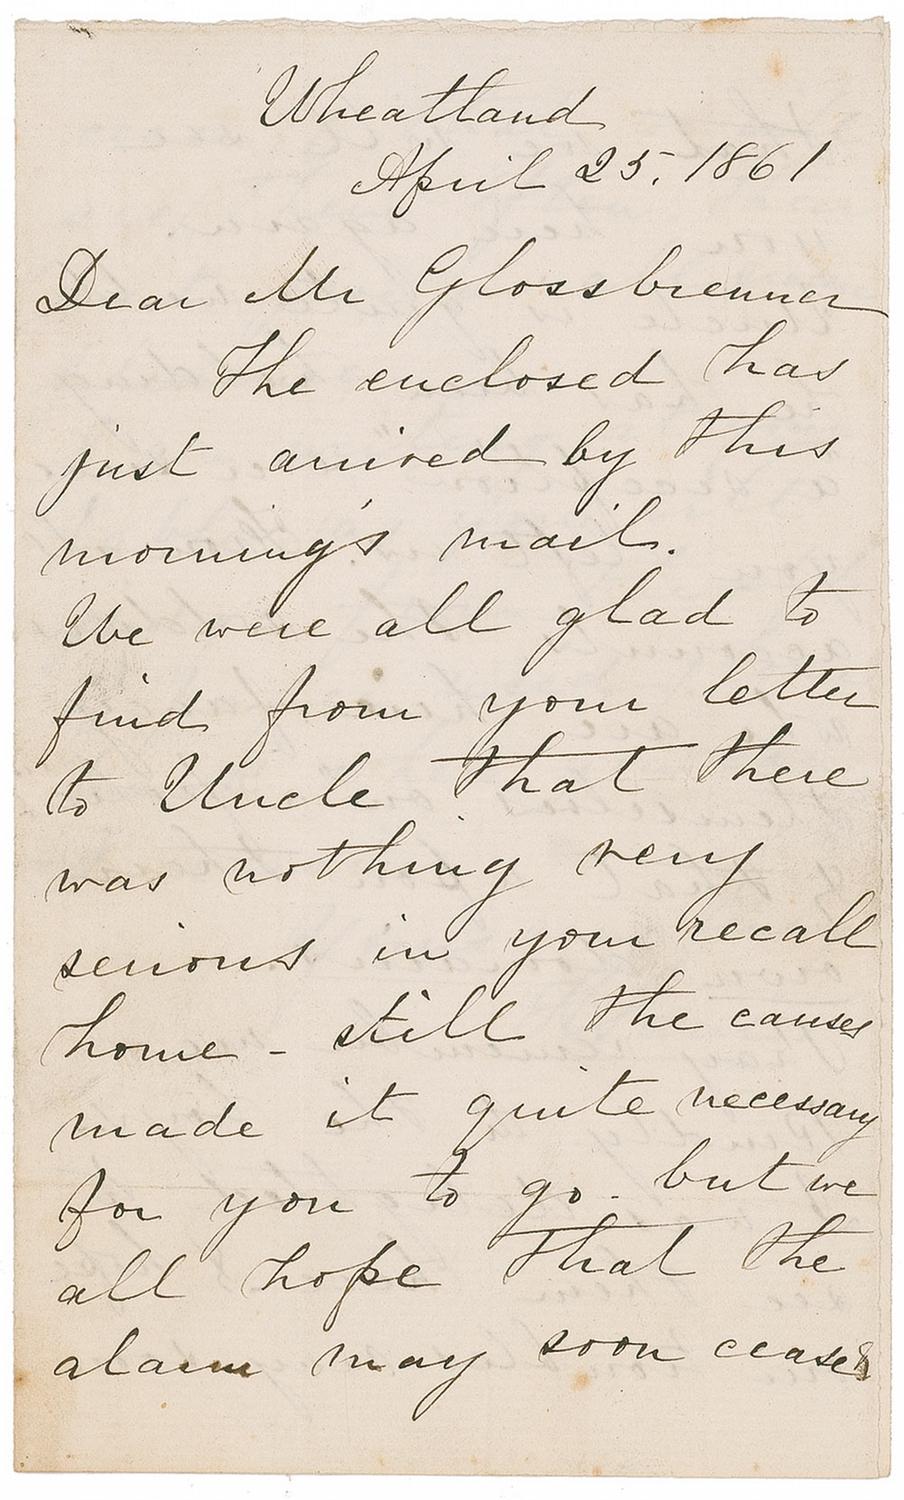 Wheatland
April 25. 1861
Dear Mr Glossbrenner
The enclosed has
just arrived by this
morning's mail.
We were all glad to
find from your letter
to Uncle that there
was nothing very
serious in your recall
home - still the causes
made it quite necessary
for you to go. but we
all hope that the
alarm may soon cease &